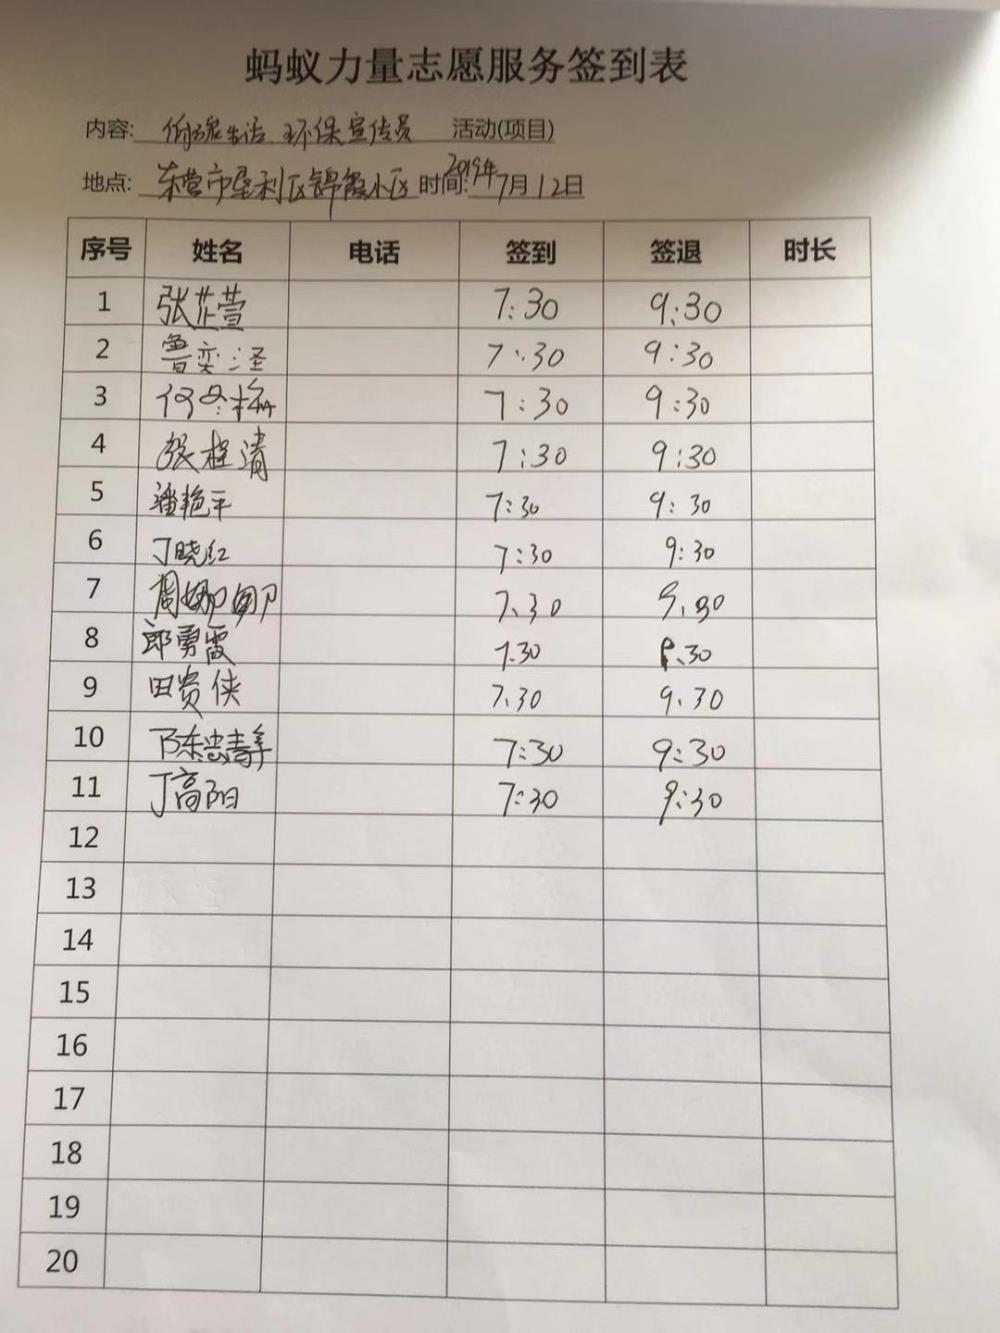 蚂蚁力量志愿服务签到表
内容: 低碳生活 环保宣传员 活动(项目)
地点: 东营市垦利区锦霞小区 时间: 2019年7月12日
序号 姓名 电话 签到 签退 时长
1 张芷萱 7:30 9:30
2 鲁奕泽 7:30 9:30
3 何冬梅 7:30 9:30
4 张桂清 7:30 9:30
5 潘艳平 7:30 9:30
6 丁晓红 7:30 9:30
7 周娜娜 7.30 9.30
8 郎勇霞 7.30 9.30
9 田贵侠 7.30 9.30
10 陈 7:30 9:30
11 丁高阳 7:30 9:30
12
13
14
15
16
17
18
19
20